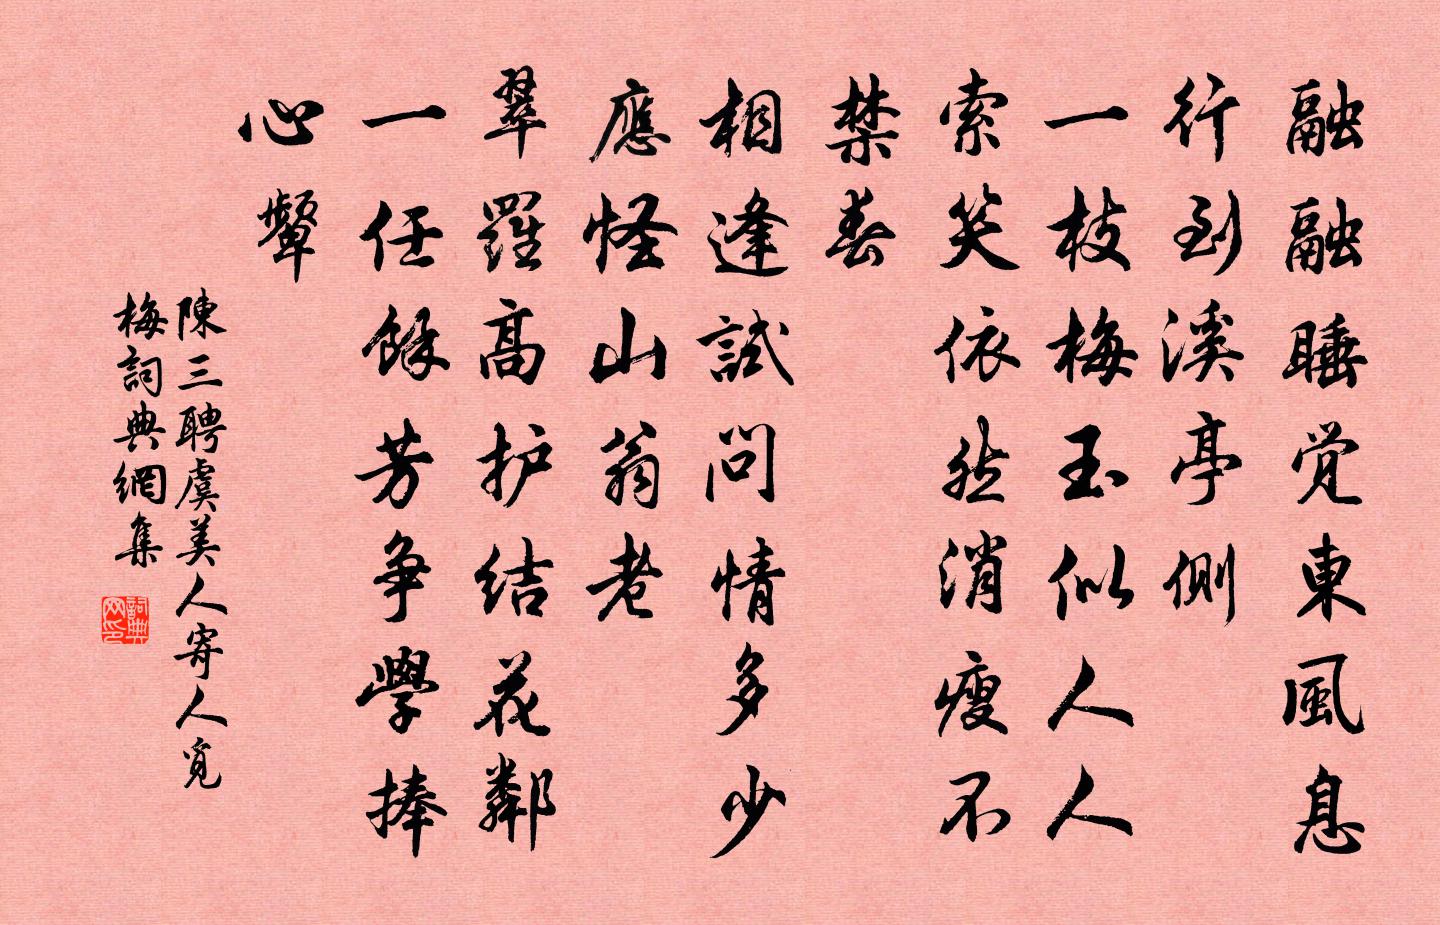 融融睡觉東風息
行到溪亭側
一枝梅玉似人人
索笑依然消瘦不
禁春
相逢試問情多少
應怪山翁老
翠羅高护结花鄰
一任餘芳争學捧
心顰
陳三聘虞美人寄人覓
梅詞典網集
詞典网印